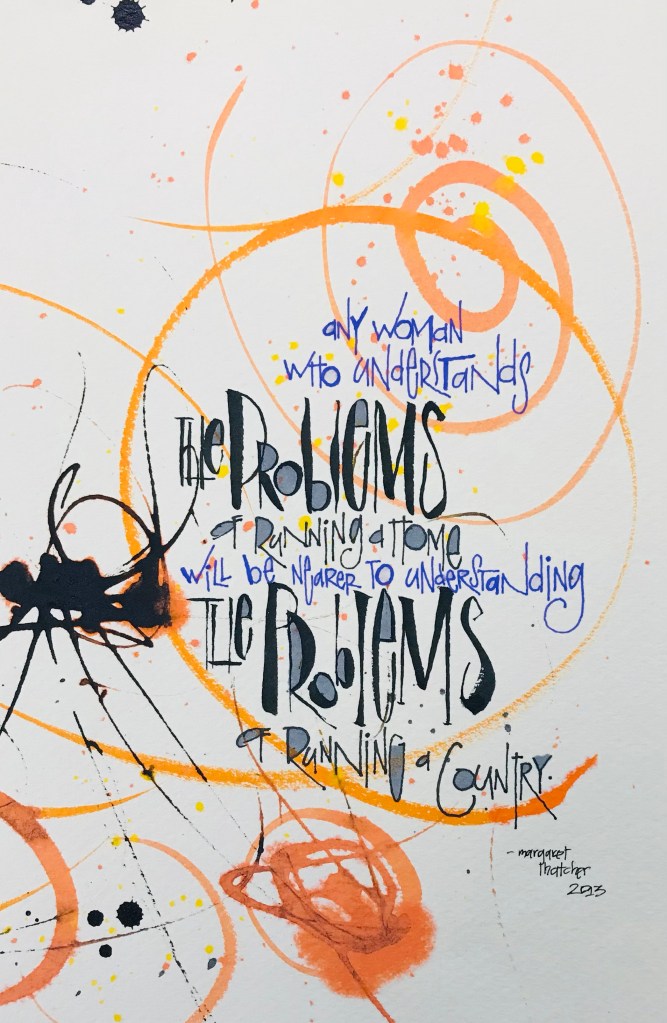 any woman
who understands
the Problems
of running a Home
will be nearer to understanding
The Problems
of Running a
Country.
- margaret
thatcher
2013